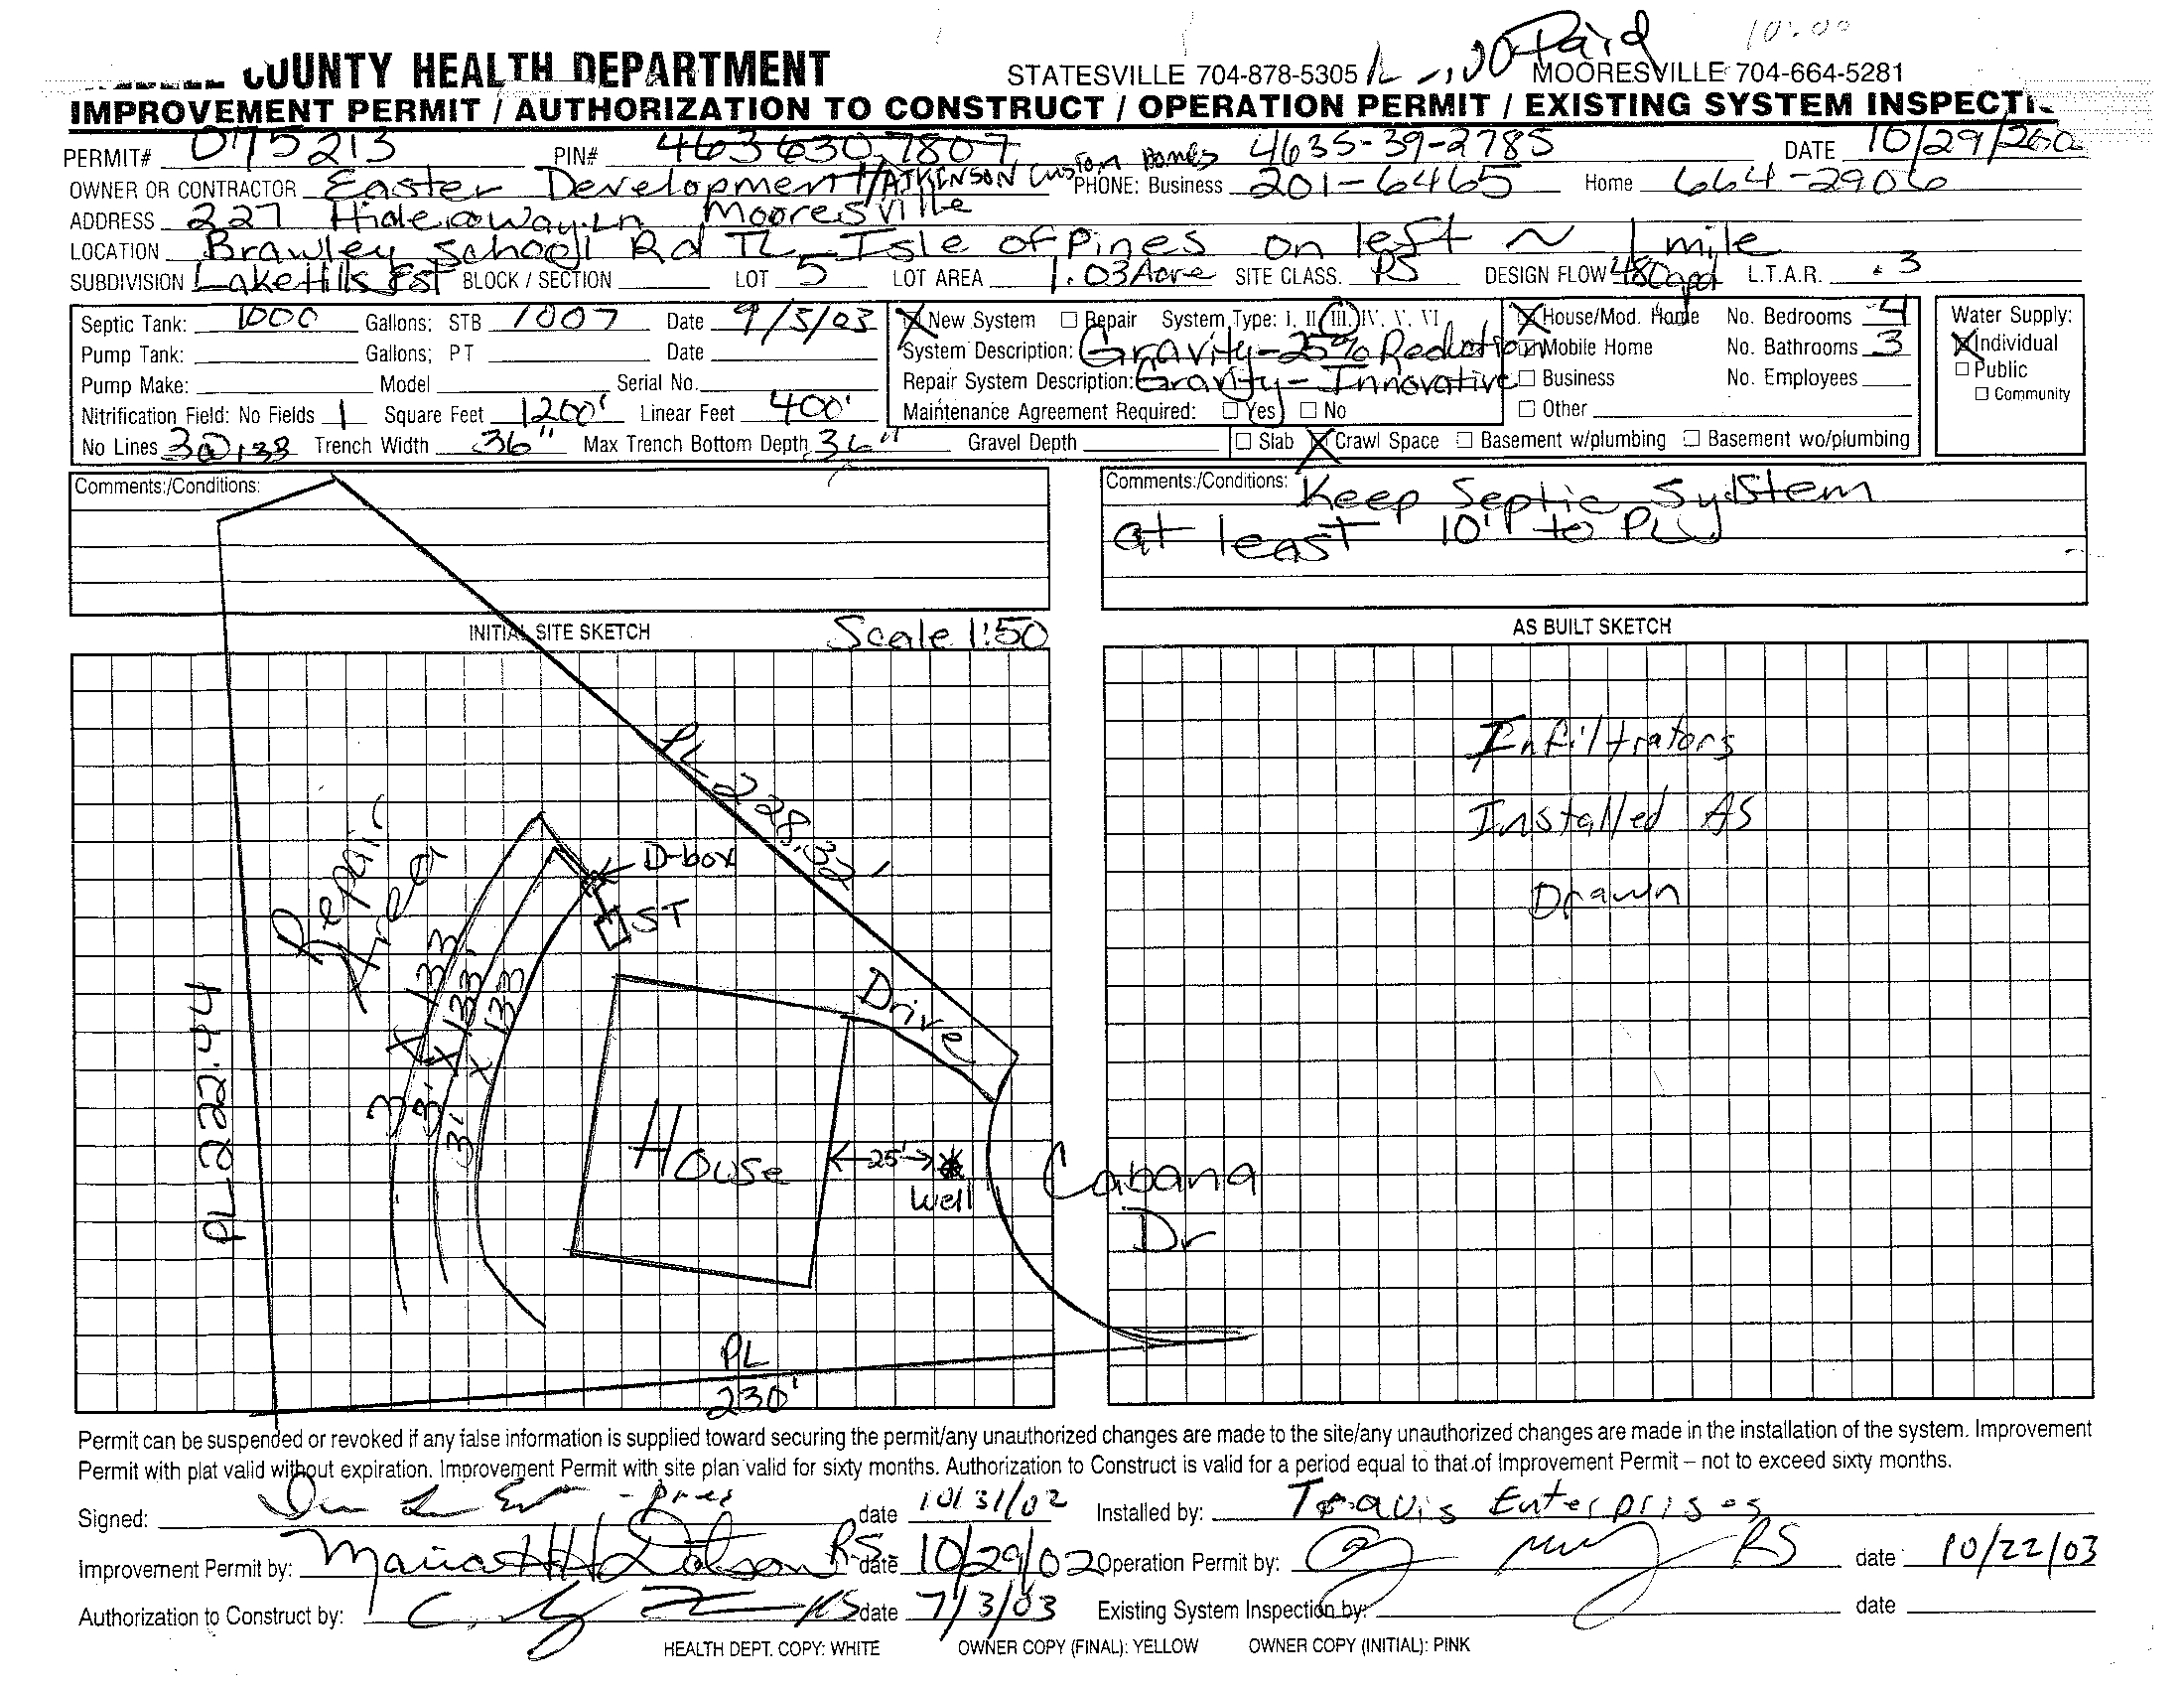 COUNTY HEALTH DEPARTMENT STATESVILLE 704-878-5305 Paid MOORESVILLE 704-664-5281 10.00
IMPROVEMENT PERMIT / AUTHORIZATION TO CONSTRUCT / OPERATION PERMIT / EXISTING SYSTEM INSPECTI
PERMIT# 075213 PIN# 4636307807 4635-39-2785 DATE 10/29/200
OWNER OR CONTRACTOR Easter Development/ATKINSON Custom Homes PHONE: Business 201-6465 Home 664-2906
ADDRESS 227 Hideaway Ln Mooresville
LOCATION Brawley School Rd TL Isle of Pines on left ~ 1 mile
SUBDIVISION Lake Hills Est BLOCK / SECTION LOT 5 LOT AREA 1.03 Acre SITE CLASS. PS DESIGN FLOW 480gpd L.T.A.R. .3
Septic Tank: 1000 Gallons: STB 1007 Date 9/5/03 X New System Repair System Type: I, II, III, IV, V, VI X House/Mod. Home No. Bedrooms 4 Water Supply:
Pump Tank: Gallons; PT Date System Description: Gravity-25% Reduction Mobile Home No. Bathrooms 3 X Individual
Pump Make: Model Serial No. Repair System Description: Gravity - Innovative Business No. Employees Public
Nitrification Field: No Fields 1 Square Feet 1200' Linear Feet 400' Maintenance Agreement Required: Yes No Other Community
No Lines 3@133 Trench Width 36" Max Trench Bottom Depth 36" Gravel Depth Slab X Crawl Space Basement w/plumbing Basement wo/plumbing
Comments:/Conditions:
Comments:/Conditions: Keep Septic Sydstem
at least 10' to PL
INITIAL SITE SKETCH Scale 1:50
AS BUILT SKETCH
PL 228.32'
Repair Area
D-box
ST
3' X 133'
3' X 133'
3' X 133
Drive
PL 222.44
House
25'
Well
Cabana
Dr
PL
230'
Infiltrators
Installed As
Drawn
Permit can be suspended or revoked if any false information is supplied toward securing the permit/any unauthorized changes are made to the site/any unauthorized changes are made in the installation of the system. Improvement
Permit with plat valid without expiration. Improvement Permit with site plan valid for sixty months. Authorization to Construct is valid for a period equal to that of Improvement Permit – not to exceed sixty months.
Signed: - Pres date 10/31/02 Installed by: Travis Enterprises
Improvement Permit by: RS date 10/29/02 Operation Permit by: RS date 10/22/03
Authorization to Construct by: RS date 7/3/03 Existing System Inspection by: date
HEALTH DEPT. COPY: WHITE OWNER COPY (FINAL): YELLOW OWNER COPY (INITIAL): PINK